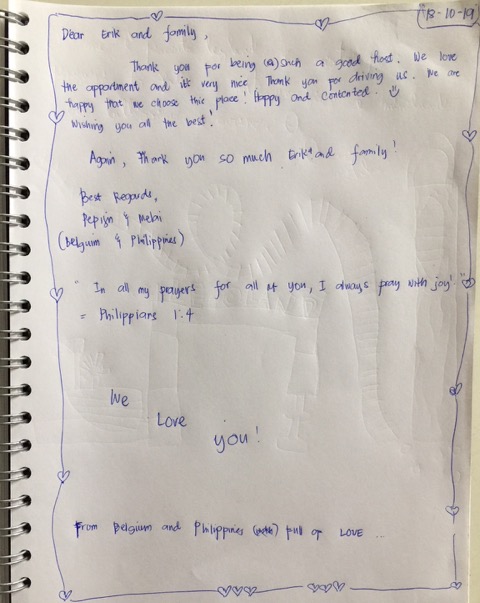 (18-10-19)
Dear Erik and family,
Thank you for being such a good host. We love
the appartment and it's very nice. Thank you for driving us. We are
happy that we choose this place! Happy and contented. ☺
Wishing you all the best!
Again, Thank you so much Erik and family!
Best Regards,
Pepijn & Mebi
(Belguim & Philippines)
" In all my prayers for all of you, I always pray with joy! "
= Philippians 1:4
We
Love
you!
From Belgium and Philippines full of LOVE ...